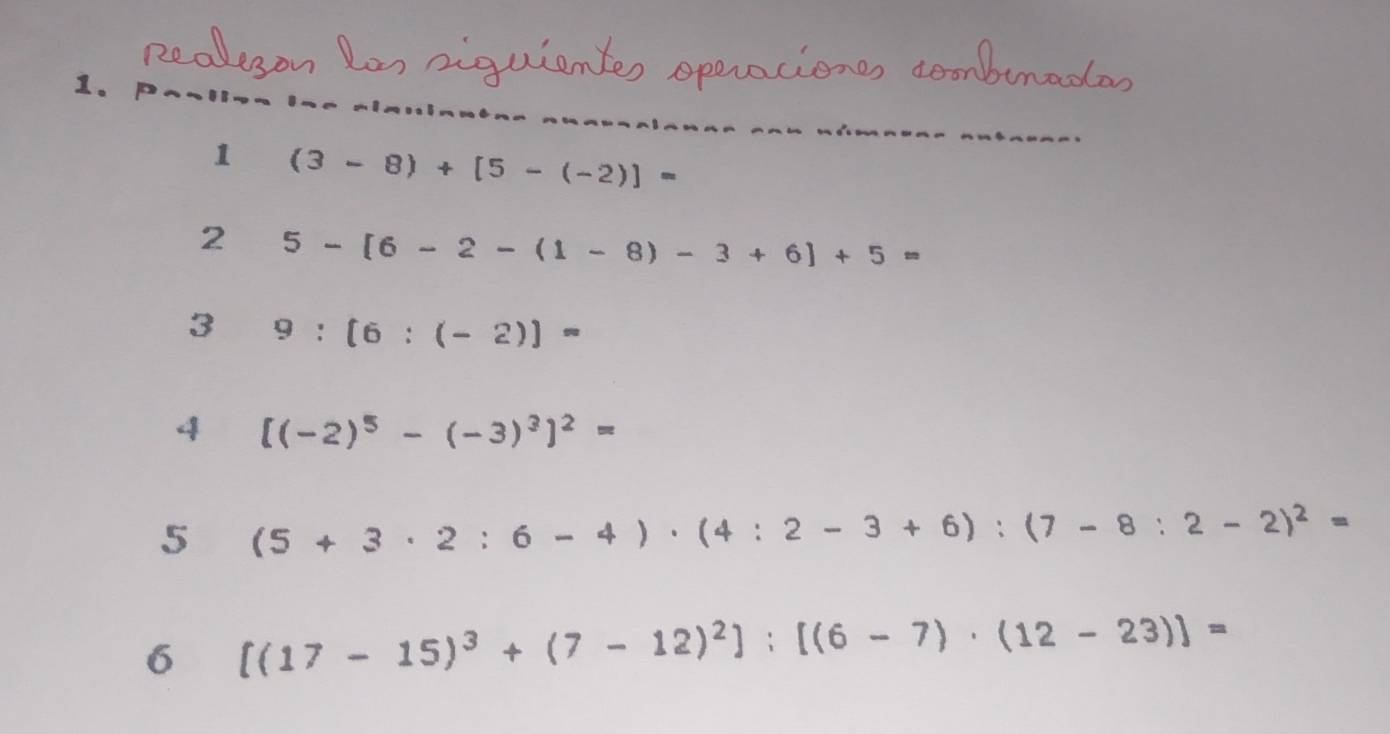 realizan las siguientes operaciones combinadas
1.
1 (3 - 8) + [5 - (-2)] =
2 5 - [6 - 2 - (1 - 8) - 3 + 6] + 5 =
3 9 : [6 : (- 2)] =
4 [(-2)⁵ - (-3)³]² =
5 (5 + 3 · 2 : 6 - 4 ) · (4 : 2 - 3 + 6) : (7 - 8 : 2 - 2)² =
6 [(17 - 15)³ + (7 - 12)²] : [(6 - 7) · (12 - 23)] =